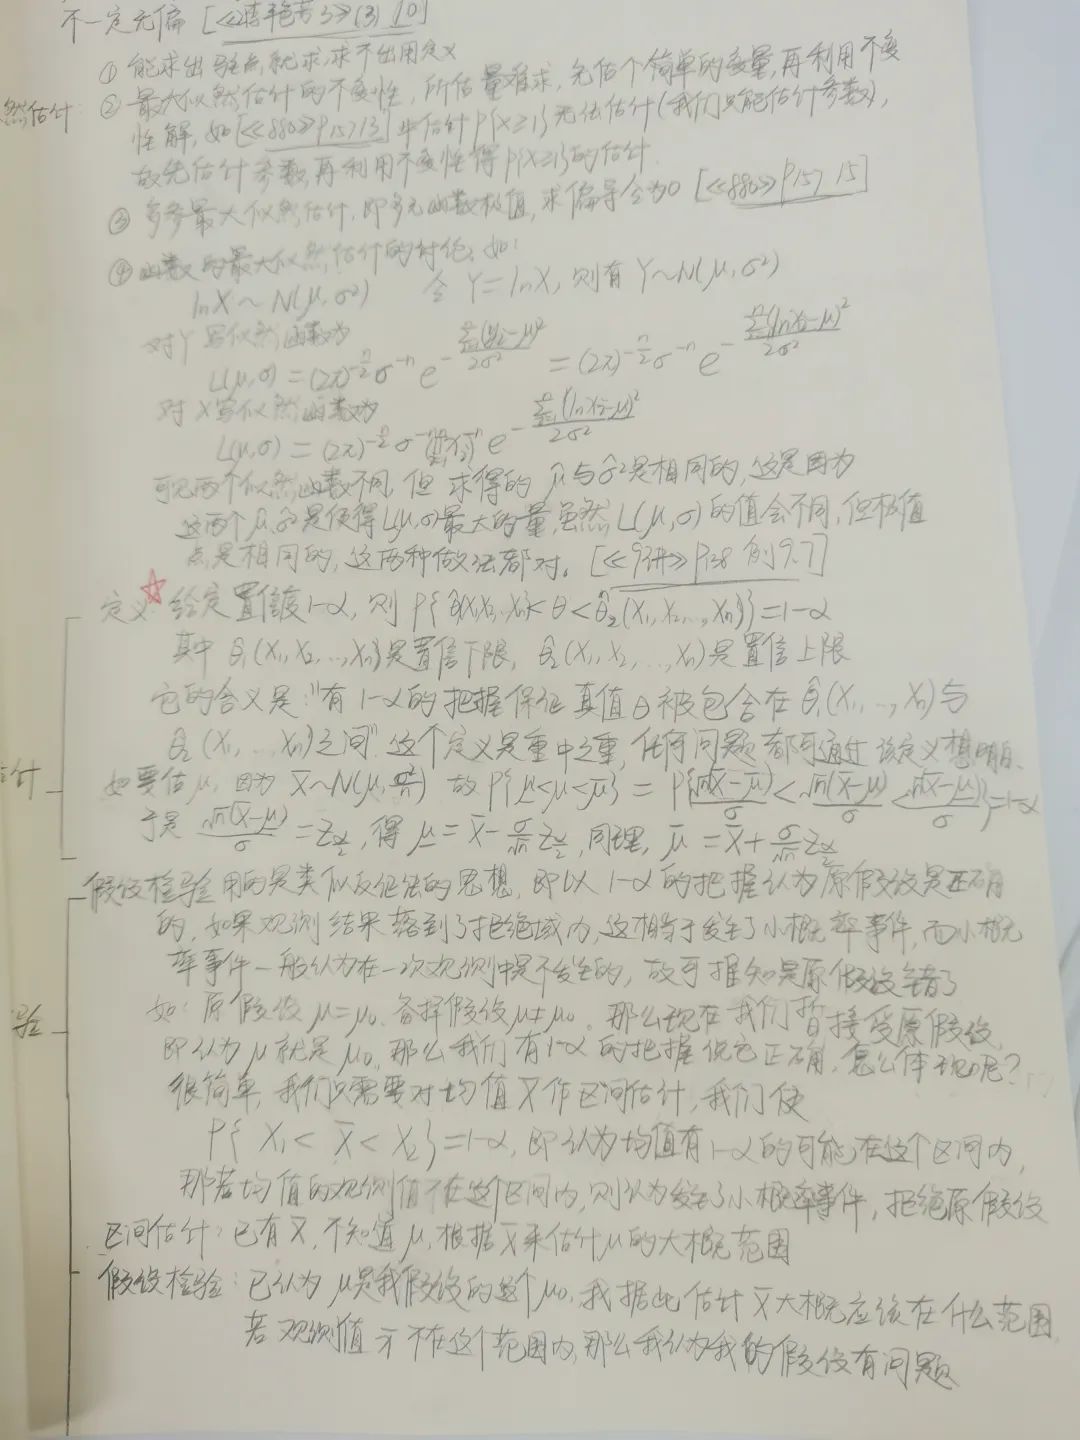 不一定无偏 [《李艳芳3》(3) 10]
① 能求出驻点,就求,求不出用定义
然估计
② 最大似然估计的不变性,所估量难求,先估个简单的变量,再利用不变
性解,如[《880》P157 13]中估计P{X≥1}无法估计(我们只能估计参数),
故先估计参数,再利用不变性得P{X≥1}的估计.
③ 多参最大似然估计,即多元函数极值,求偏导令为0 [《880》P157 15]
④ 函数的最大似然估计的讨论,如:
lnX~N(μ,σ²) 令Y=lnX,则有Y~N(μ,σ²)
对Y写似然函数为
L(μ,σ)=(2π)^{-n/2}σ^{-n}e^{-\frac{\sum_{i=1}^{n}(y_i-μ)²}{2σ²}}=(2π)^{-n/2}σ^{-n}e^{-\frac{\sum_{i=1}^{n}(lnx_i-μ)²}{2σ²}}
对X写似然函数为
L(μ,σ)=(2π)^{-n/2}σ^{-n}(\prod_{i=1}^{n}x_i)^{-1}e^{-\frac{\sum_{i=1}^{n}(lnx_i-μ)²}{2σ²}}
可见两个似然函数不同,但求得的μ̂与σ̂²是相同的,这是因为
这两个μ̂,σ̂²是使得L(μ,σ)最大的量,虽然L(μ,σ)的值会不同,但极值
点是相同的,这两种做法都对。[《9讲》P138 例9.7]
定义☆ 给定置信度1-α,则P{θ̂₁(X₁,X₂,…,Xn)<θ<θ̂₂(X₁,X₂,…,Xn)}=1-α
其中θ̂₁(X₁,X₂,…,Xn)是置信下限,θ̂₂(X₁,X₂,…,Xn)是置信上限
它的含义是:"有1-α的把握保证真值θ被包含在θ̂₁(X₁,…,Xn)与
θ̂₂(X₁,…,Xn)之间".这个定义是重中之重,任何问题都可通过该定义想明白.
估计
如要估μ,因为X̄~N(μ,σ²/n) 故P{μ̲<μ<μ̄}=P{\frac{√n(X̄-μ̄)}{σ}<\frac{√n(X̄-μ)}{σ}<\frac{√n(X̄-μ̲)}{σ}}=1-α
于是\frac{√n(X̄-μ̲)}{σ}=Z_{α/2},得μ̲=X̄-\frac{σ}{√n}Z_{α/2},同理,μ̄=X̄+\frac{σ}{√n}Z_{α/2}
假设检验用的是类似反证法的思想,即以1-α的把握认为原假设是正确
的,如果观测结果落到了拒绝域内,这相当于发生了小概率事件,而小概
率事件一般认为在一次观测中是不发生的,故可推知是原假设错了
验
如:原假设μ=μ₀,备择假设μ≠μ₀。那么现在我们暂接受原假设,
即认为μ就是μ₀,那么我们有1-α的把握说它正确,怎么体现呢?
很简单,我们只需要对均值X̄作区间估计,我们使
P{X₁<X̄<X₂}=1-α,即认为均值有1-α的可能在这个区间内,
那若均值的观测值不在这个区间内,则认为发生了小概率事件,拒绝原假设
区间估计:已有X̄,不知道μ,根据X̄来估计μ的大概范围
假设检验:已认为μ是我假设的这个μ₀,我据此估计X̄大概应该在什么范围,
若观测值x̄不在这个范围内,那么我认为我的假设有问题